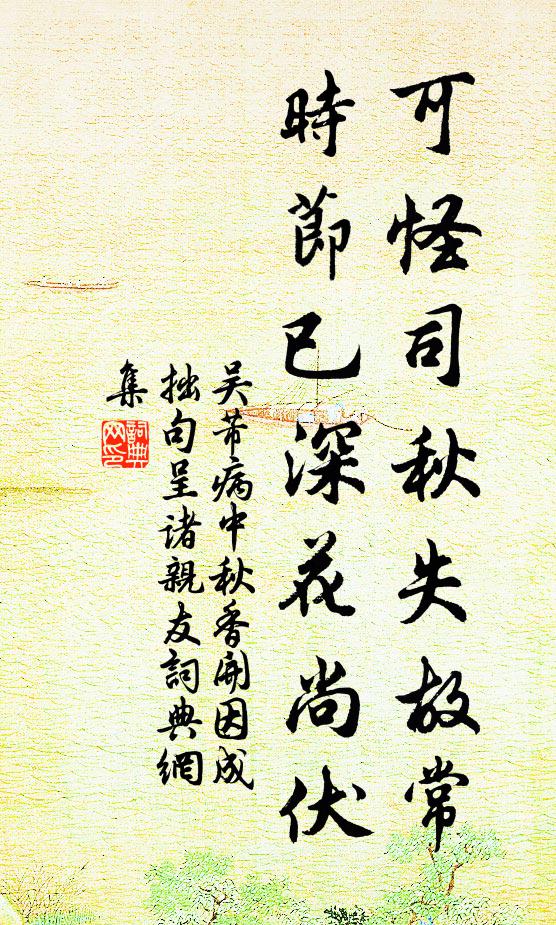 可怪司秋失故常
時節已深花尚伏
吴芾病中秋香開因成
拙句呈诸親友詞典網
集
詞典網印